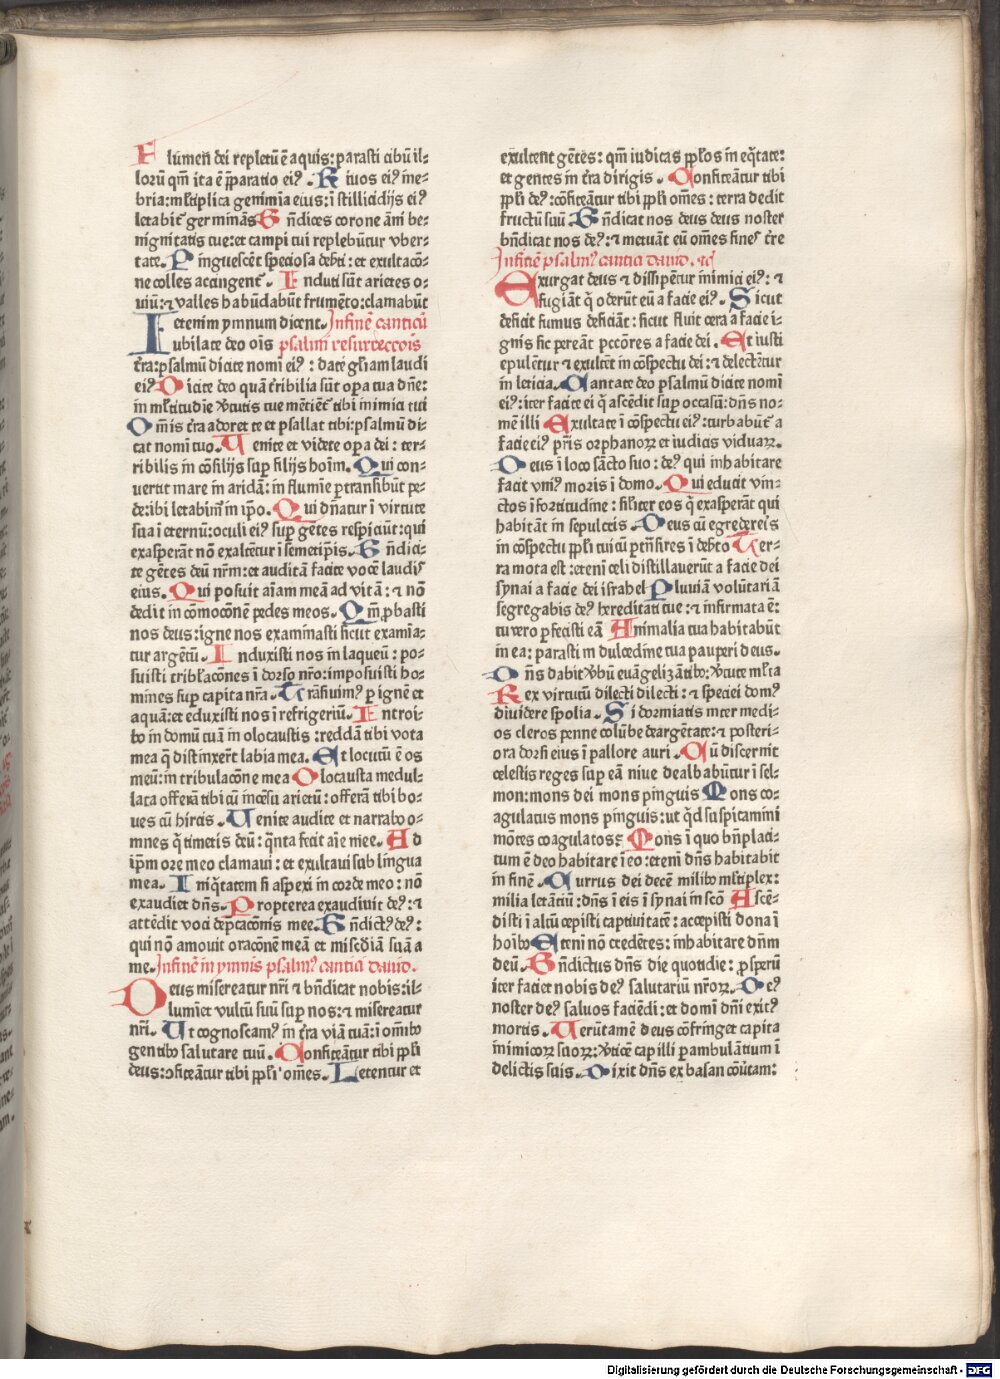 Flumen dei repletū ē aquis: parasti cibū il⸗
lorū qm̄ ita ē p̄paratio eiꝰ. Riuos eiꝰ ine⸗
bria: ml̄tiplica genimīa eius: ī stillicidijs eiꝰ
letabit̄ germinās Bn̄dices corone āni be⸗
nignitatis tue: et campi tui replebūtur vber⸗
tate. Pinguescēt speciosa deb̄ti: et exultacō⸗
ne colles accingent̄. Induti sūt arietes o⸗
uiū: ⁊ valles habūdabūt frumēto: clamabūt
etenim ymnum dicent. Infinē canticū
Iubilate deo oīs psalmi resurreccōis
t̄ra: psalmū dicite nomī eiꝰ: date gl̄iam laudi
eiꝰ Dicite deo quā t̄ribilia sūt oꝑa tua dn̄e:
in ml̄titudīe v̄tutis tue mētiēt̄ tibi inimici tui
Om̄is t̄ra adoret te et psallat tibi: psalmū di
cat nomī tuo. Uenite et videte oꝑa dei: ter⸗
ribilis in cōsilijs suꝑ filijs hoīm. Qui con⸗
uertit mare in aridā: in flumīe ꝑtransibūt pe⸗
de: ibi letabimᷣ in ip̄o. Qui dn̄atur ī virtute
sua ī eternū: oculi eiꝰ suꝑ gētes respiciūt: qui
exasperāt nō exaltētur ī semetip̄is. Bn̄dici⸗
te gētes deū nr̄m: et auditā facite vocē laudis
eius. Qui posuit aīam meā ad vitā: ⁊ nō
dedit in cōmocōnē pedes meos. Qm̄ ꝓbasti
nos deus: igne nos examinasti sicut examīa⸗
tur argētū. Induxisti nos in laqueū: po⸗
suisti tribl̄acōnes ī dorso nr̄o: imposuisti ho⸗
mines suꝑ capita nr̄a. Trāsiuimꝰ ꝑ ignē et
aquā: et eduxisti nos ī refrigeriū. Introi⸗
bo in domū tuā in olocaustis: reddā tibi vota
mea q̄ distinxer̄t labia mea. Et locutū ē os
meū: in tribulacōne mea Olocausta medul⸗
lata offerā tibi cū incēsu arietū: offerā tibi bo⸗
ues cū hircis. Uenite audite et narrabo o⸗
mnes q̄ timetis deū: q̄nta fecit aīe mee. Ad
ip̄m ore meo clamaui: et exultaui sub lingua
mea. Iniq̄tatem si aspexi in corde meo: nō
exaudiet dn̄s. Propterea exaudiuit deꝰ: ⁊
attēdit voci dep̄cacōnis mee. Bn̄dictꝰ deꝰ:
qui nō amouit oracōnē meā et misc̄diā suā a
me. Infinē in ymnis psalmꝰ cantici dauid.
Deus misereatur nr̄i ⁊ bn̄dicat nobis: il⸗
lumīet vultū suū suꝑ nos: ⁊ misereatur
nr̄i. Ut cognoscamꝰ in t̄ra viā tuā: ī om̄ibꝰ
gentibꝰ salutare tuū. Confiteātur tibi ppl̄i
deus: ꝯfiteātur tibi ppl̄i om̄es. Letentur et
exultent gētes: qm̄ iudicas ppl̄os in eq̄tate:
et gentes in t̄ra dirigis. Confiteātur tibi
ppl̄i deꝰ: cōfiteātur tibi ppl̄i om̄es: terra dedit
fructū suū. Bn̄dicat nos deus deus noster
bn̄dicat nos deꝰ: ⁊ metuāt eū om̄es fines t̄re
Infinē psalmꝰ cantici dauid.
Exurgat deus ⁊ dissipētur inimici eiꝰ: ⁊
fugiāt q̄ oderūt eū a facie eiꝰ. Sicut
deficit fumus deficiāt: sicut fluit cera a facie i⸗
gnis sic pereāt pccōres a facie dei. Et iusti
epulētur ⁊ exultēt in cōspectu dei: ⁊ delectētur
in leticia. Cantate deo psalmū dicite nomī
eiꝰ: iter facite ei q̄ ascēdit suꝑ occasū: dn̄s no⸗
mē illi Exultate ī cōspectu eiꝰ: turbabūt̄ a
facie eiꝰ pr̄is orphanoꝝ et iudicis viduaꝝ.
Deus ī loco sācto suo: deꝰ qui inhabitare
facit vniꝰ moris ī domo. Qui educit vin⸗
ctos ī fortitudine: sil̄iter eos q̄ exasperāt qui
habitāt in sepulcris. Deus cū egredereris
in cōspectu ppl̄i tui cū ꝑtn̄sires ī deb̄to Ter⸗
ra mota est: eteni celi distillauerūt a facie dei
synai a facie dei israhel Pluuiā volūtariā
segregabis deꝰ hereditati tue: ⁊ infirmata ē:
tu vero ꝑfecisti eā Animalia tua habitabūt
in ea: parasti in dulcedine tua pauperi deus.
Dn̄s dabit v̄bū euāgelizātibꝰ: v̄tute ml̄ta
Rex virtutū dilecti dilecti: ⁊ speciei domꝰ
diuidere spolia. Si dormiatis inter medi⸗
os cleros penne colūbe deargētate: ⁊ posteri⸗
ora dorsi eius ī pallore auri. Cū discernit
celestis reges suꝑ eā niue dealbabūtur ī sel⸗
mon: mons dei mons pinguis Mons co⸗
agulatus mons pinguis: ut q̄d suspicamini
mōtes coagulatos Mons ī quo bn̄placi⸗
tum ē deo habitare ī eo: eteni dn̄s habitabit
in finē. Currus dei decē milibꝰ ml̄tiplex:
milia letātiū: dn̄s ī eis ī synai in scō Ascē⸗
disti ī altū cepisti captiuitatē: accepisti dona ī
hoībꝰ Eteni nō credētes: inhabitare dn̄m
deū. Bn̄dictus dn̄s die quotidie: ꝓsperū
iter faciet nobis deꝰ salutariū nr̄oꝝ. Deꝰ
noster deꝰ saluos faciēdi: et domī dn̄i exitꝰ
mortis. Uerūtamē deus cōfringet capita
inimicoꝝ suoꝝ: v̄ticē capilli ꝑambulātium ī
delictis suis. Dixit dn̄s ex basan cōuertam:
Digitalisierung gefördert durch die Deutsche Forschungsgemeinschaft - DFG